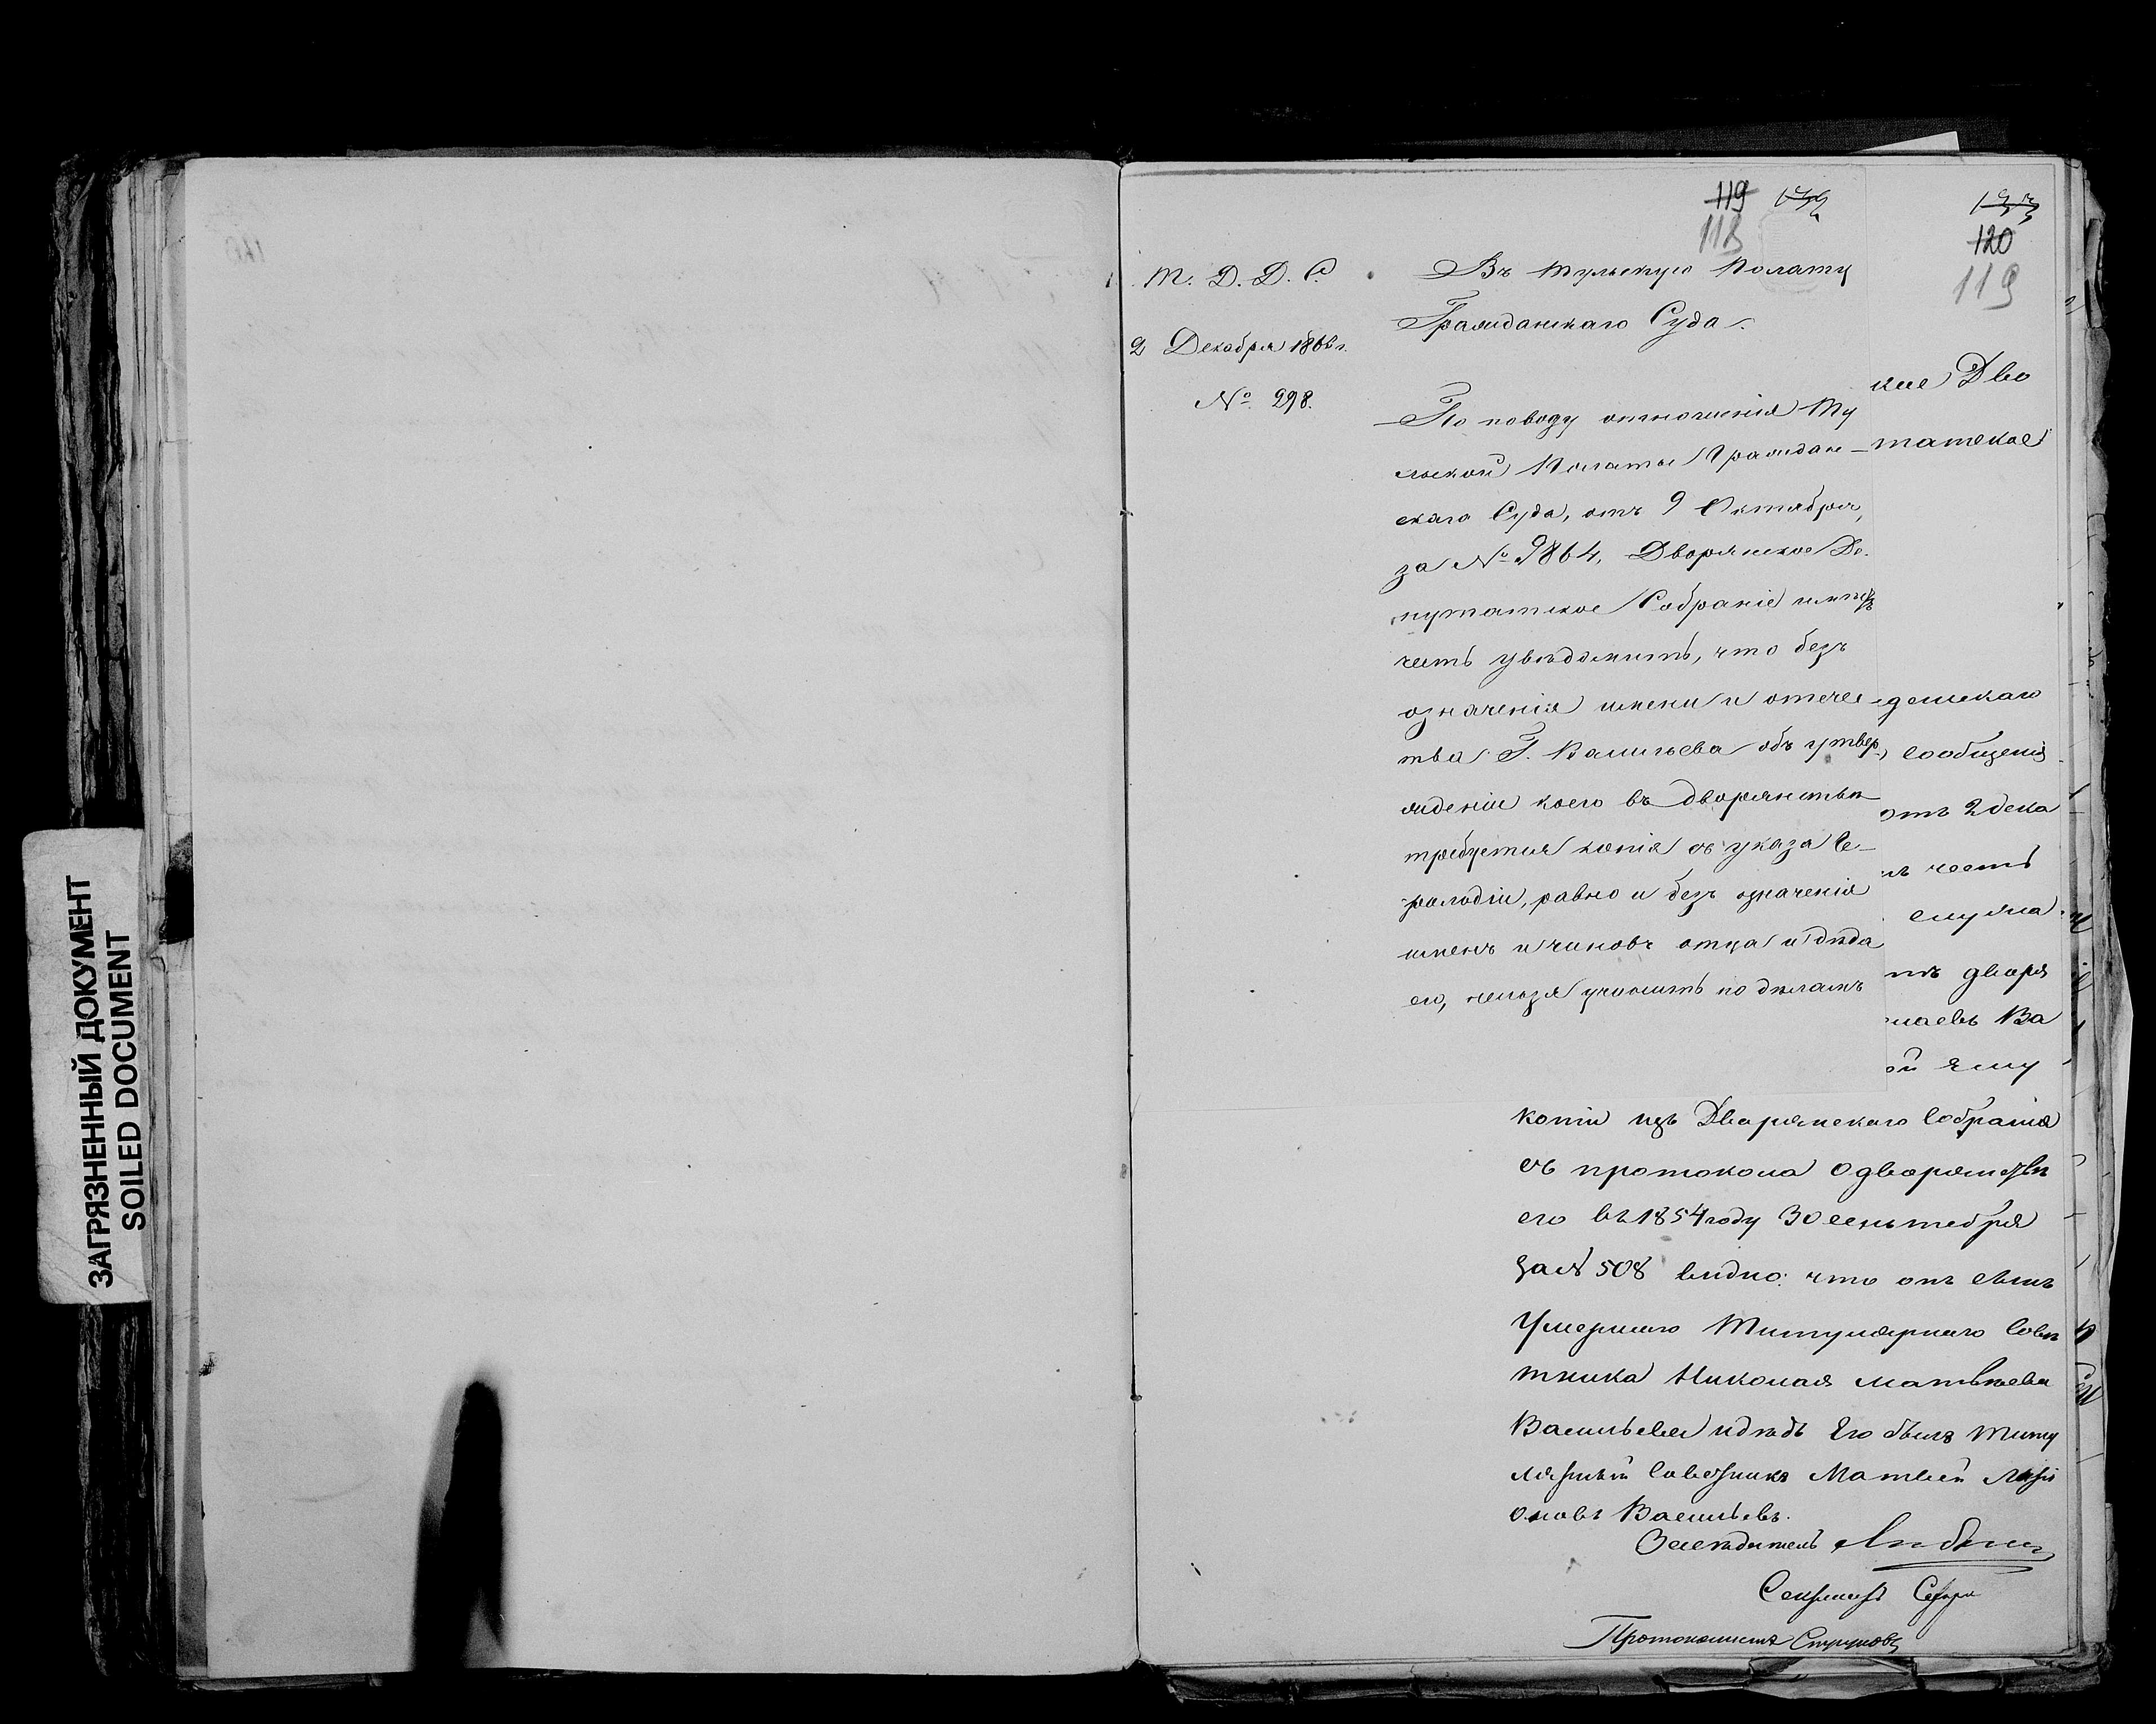 ЗАГРЯЗНЕННЫЙ ДОКУМЕНТ
SOILED DOCUMENT
119
118
120
119
Т. Д. Д. С.
2 Декабря 1866 г.
№ 298.
Въ Тульскую Полату
Гражданскаго Суда.
По поводу отношенія Ту
льской Полаты Граждан-
скаго Суда, отъ 9 Октября,
за № 9864, Дворянское Де-
путатское Собраніе имѣетъ
честь увѣдомить, что безъ
означенія имени и отчес
тва Г. Васильева объ утвер
жденіи коего въ дворянствѣ
требуется копія съ указа Ге-
рольдіи, равно и безъ означенія
именъ и чиновъ отца и дѣда
его, нельзя учинить по дѣламъ
кое Дво
татское
данскаго
сообщенія
отъ 2 дека
честь
ему на
дворя
лаевъ Ва
ой Ему
копіи изъ Дворянскаго Собранія
съ протокола о дворянствѣ
его въ 1854 году 30 сентебря
за № 508 видно: что онъ сынъ
Умершаго Титулярнаго Совѣ
тника Николая Матвѣева
Васильева и дѣдъ Его былъ Титу
лярный Советникъ Матвей
оновъ Васильевъ.
Заседатель
Секретарь
Протоколистъ